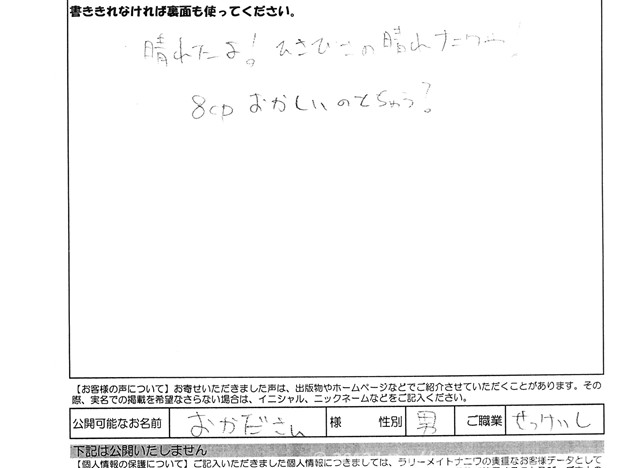 書ききれなければ裏面も使ってください。
晴れたよ! ひさびさの晴れナニワ!
8cp おかしいのとちゃう?
【お客様の声について】お寄せいただきました声は、出版物やホームページなどでご紹介させていただくことがあります。その
際、実名での掲載を希望なさらない場合は、イニシャル、ニックネームなどをご記入ください。
公開可能なお名前 おかださん 様 性別 男 ご職業 せっけいし
下記は公開いたしません
【個人情報の保護について】ご記入いただきました個人情報につきましては、ラリーメイトナニワの貴重なお客様データとして